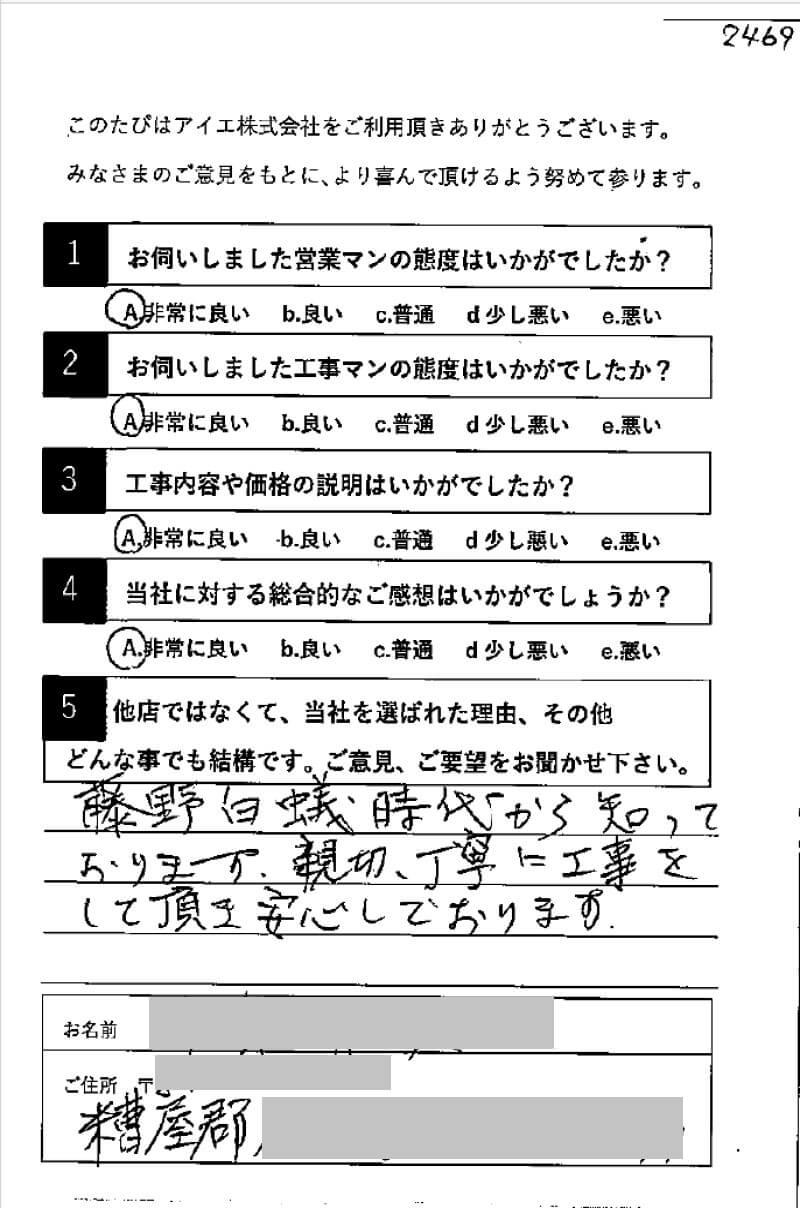 2469
このたびはアイエ株式会社をご利用頂きありがとうございます。
みなさまのご意見をもとに、より喜んで頂けるよう努めて参ります。
1 お伺いしました営業マンの態度はいかがでしたか？
A.非常に良い b.良い c.普通 d 少し悪い e.悪い
2 お伺いしました工事マンの態度はいかがでしたか？
A.非常に良い b.良い c.普通 d 少し悪い e.悪い
3 工事内容や価格の説明はいかがでしたか？
A.非常に良い b.良い c.普通 d 少し悪い e.悪い
4 当社に対する総合的なご感想はいかがでしょうか？
A.非常に良い b.良い c.普通 d 少し悪い e.悪い
5 他店ではなくて、当社を選ばれた理由、その他
どんな事でも結構です。ご意見、ご要望をお聞かせ下さい。
藤野白蟻時代から知って
おります。親切、丁寧に工事を
して頂き安心しております。
お名前
ご住所 〒
糟屋郡